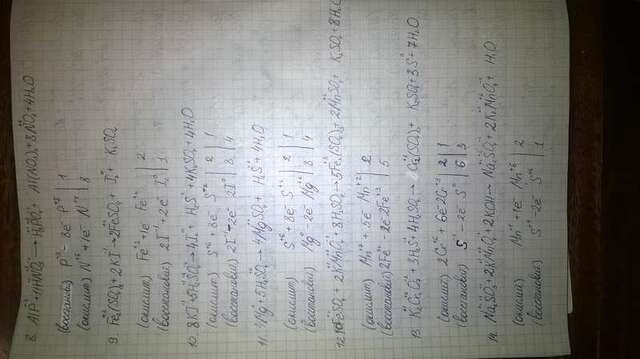 8. AlP + 11HNO₃ → H₃PO₄ + Al(NO₃)₃ + 8NO₂ + 4H₂O
(восстанови) P⁻³ - 8e⁻ P⁺⁵ | 1
(окислит) N⁺⁵ + 1e⁻ N⁺⁴ | 8
9. Fe₂(SO₄)₃ + 2KI → 2FeSO₄ + I₂ + K₂SO₄
(окислит) Fe⁺³ + 1e Fe⁺² | 2
(восстанови) 2I⁻¹ + 2e⁻ I₂⁰ | 1
10. 8KI + 5H₂SO₄ → 4I₂ + H₂S + 4K₂SO₄ + 4H₂O
(окислит) S⁺⁶ + 8e⁻ S⁻² | 2 | 1
(восстанови) 2I⁻¹ - 2e⁻ 2I⁰ | 8 | 4
11. 4Mg + 5H₂SO₄ → 4MgSO₄ + H₂S + 4H₂O
(окислит) S⁺⁶ + 8e⁻ S⁻² | 2 | 1
(восстанови) Mg⁰ - 2e⁻ Mg⁺² | 8 | 4
12. 10FeSO₄ + 2KMnO₄ + 8H₂SO₄ → 5Fe₂(SO₄)₃ + 2MnSO₄ + K₂SO₄ + 8H₂O
(окислит) Mn⁺⁷ + 5e⁻ Mn⁺² | 2
(восстанови) 2Fe⁺² - 2e⁻ 2Fe⁺³ | 5
13. K₂Cr₂O₇ + 3H₂S + 4H₂SO₄ → Cr₂(SO₄)₃ + K₂SO₄ + 3S + 7H₂O
(окислит) 2Cr⁺⁶ + 6e⁻ 2Cr⁺³ | 2 | 1
(восстанови) S⁻² - 2e⁻ S⁰ | 6 | 3
14. Na₂SO₃ + 2KMnO₄ + 2KOH → Na₂SO₄ + 2K₂MnO₄ + H₂O
(окислит) Mn⁺⁷ + 1e⁻ Mn⁺⁶ | 2
(восстанови) S⁺⁴ - 2e⁻ S⁺⁶ | 1